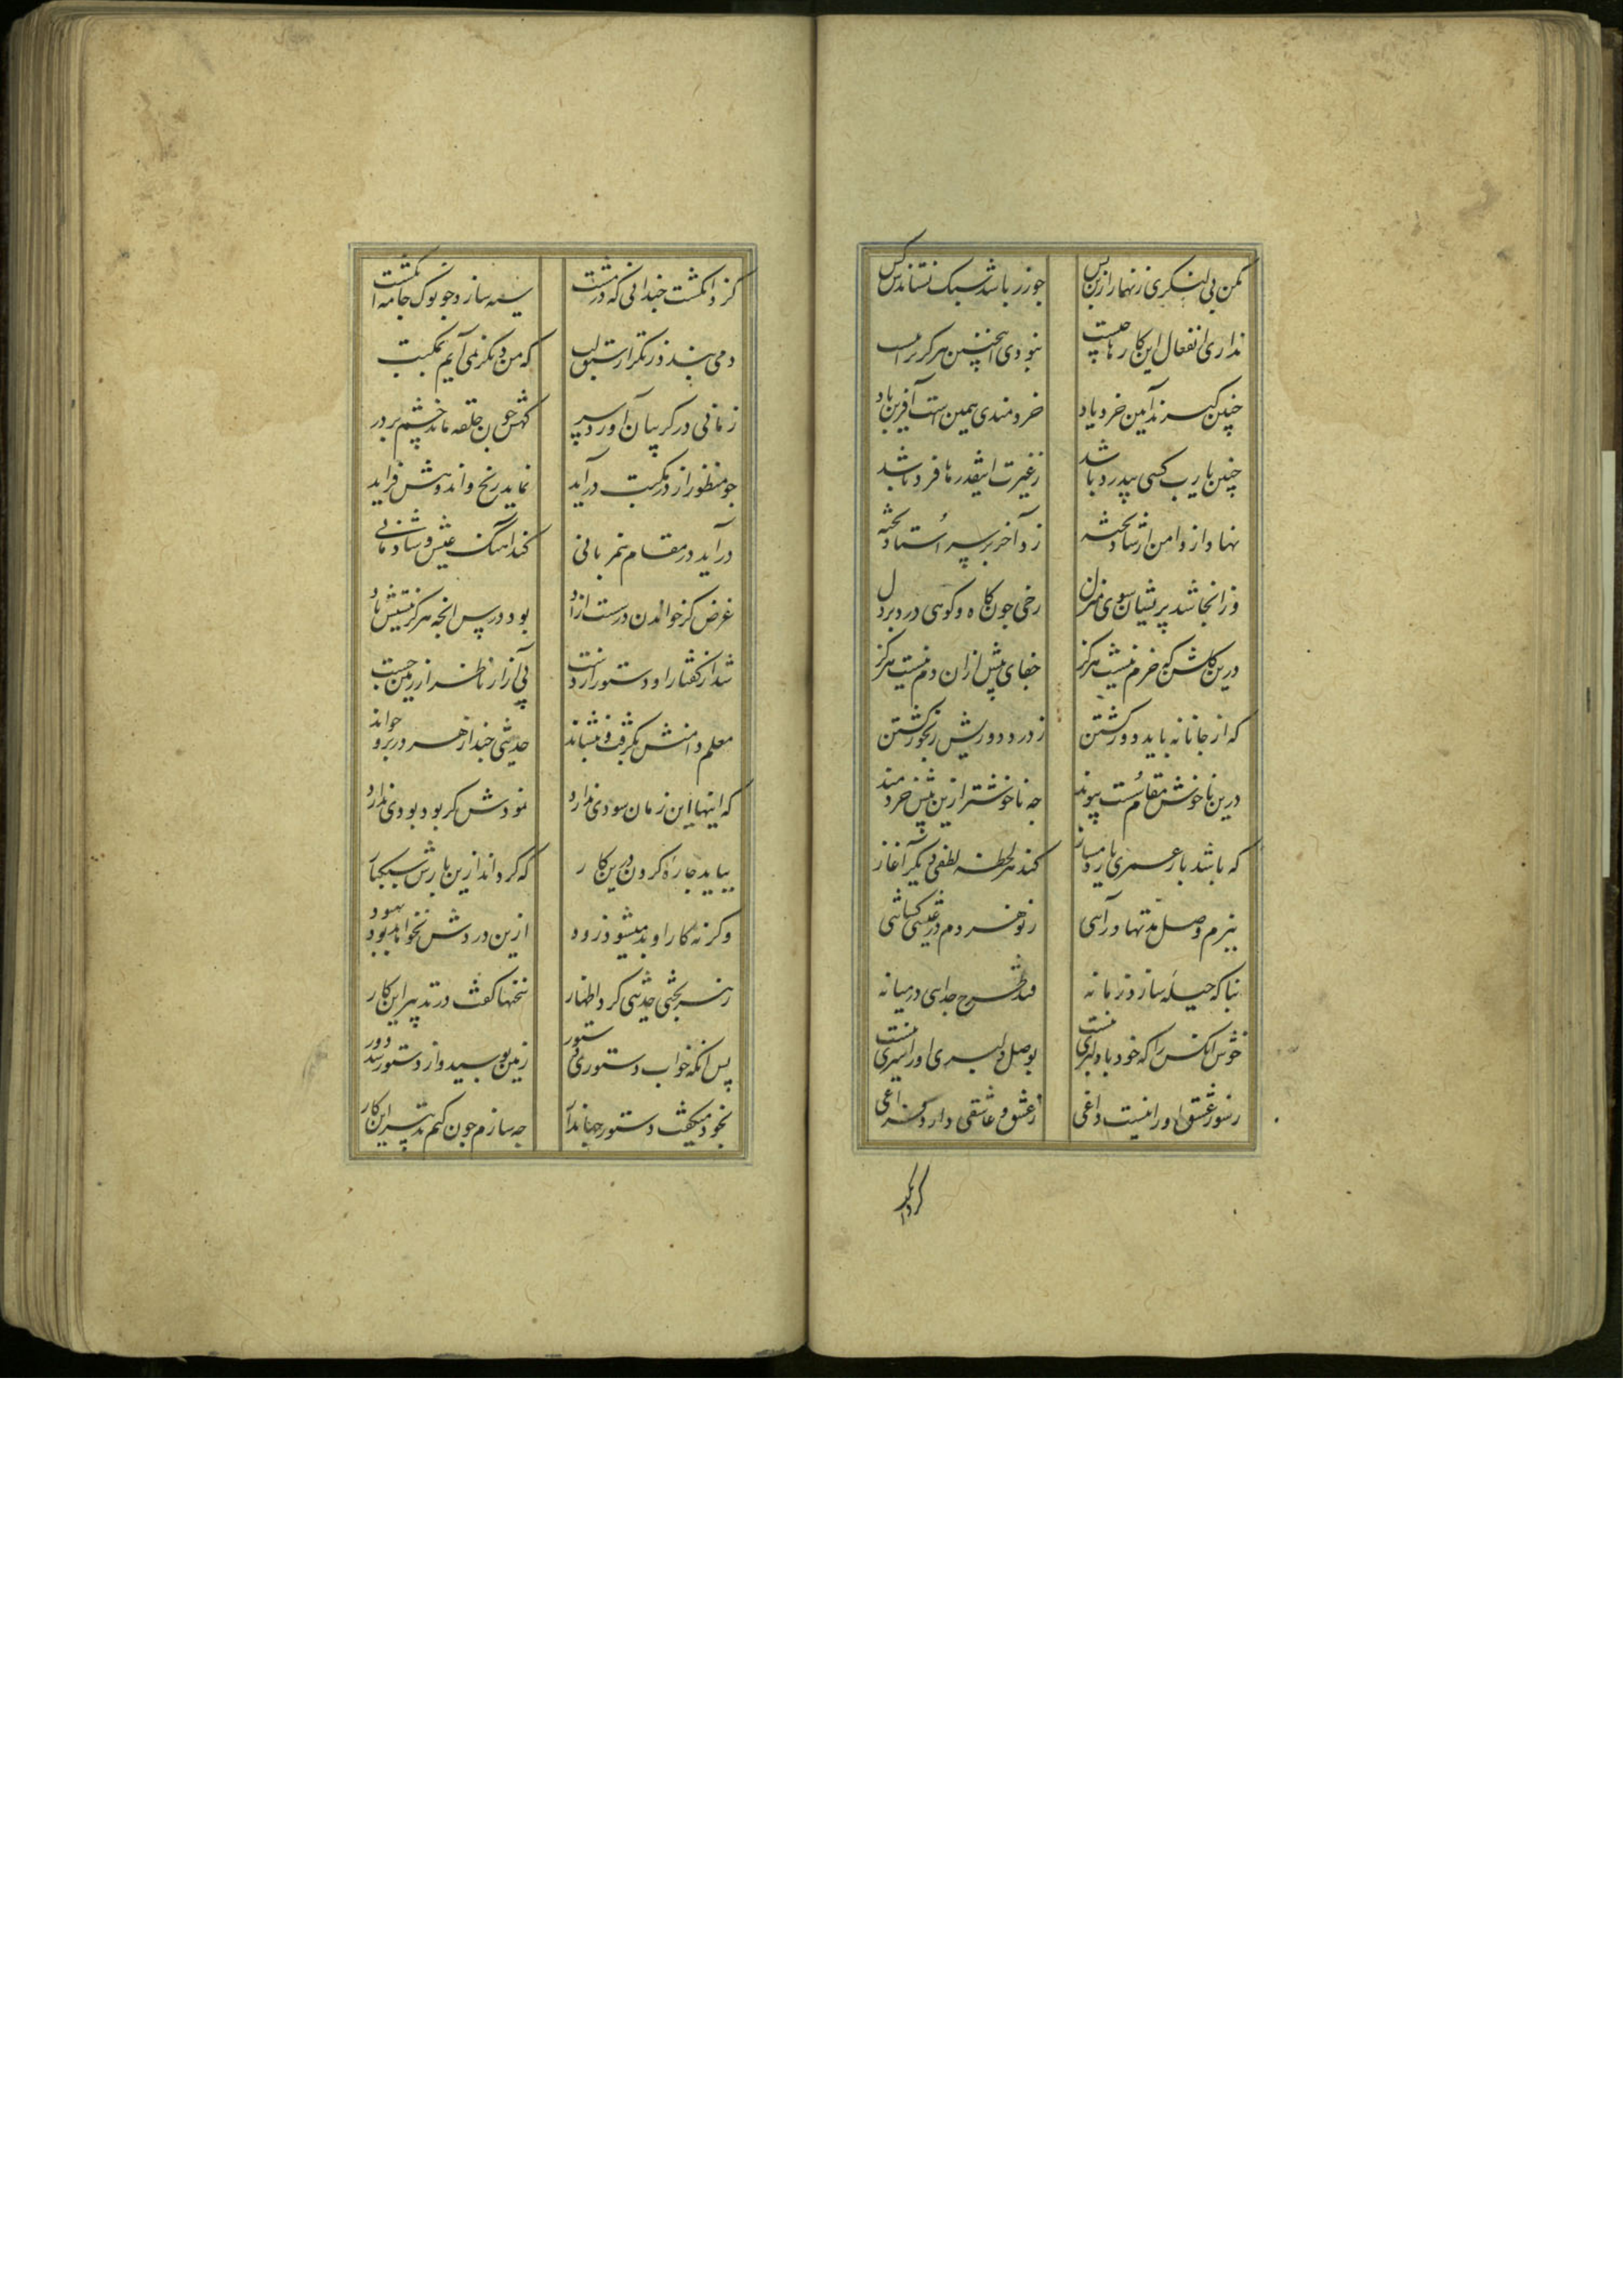 مکن بی لنگری زنهار ازین پس جو زر باشد سبک نستاندش کس
نداری انفعال این کارها چیست نبودی اینچنین هرگز ترا
چنین گیرند آیین خرد یاد خردمندی همین است آفرین باد
چنین یارب کسی بیدرد باشد ز غیرت اینقدرها فرد باشد
نهاد از دامن ارشاد تخته زد آخر بر سر استاد تخته
وز انجا شد پریشان سوی منزل رخی جون کاه و کوهی درد بر دل
درین کلشن که خرم نیست هرگز جفای پیش ازان دم نیست هرگز
که از جانانه باید دور کشتن ز درد دوریش رنجور کشتن
درین ناخوش مقام سست پیوند جه ناخوشتر ازین پیش خردمند
که باشد یار عمری یار دمساز کند هر لحظه لطفی دیگر آغاز
ببزم وصل مدتها در آیی ز نو هر دم در عیشی کشایی
بناکه حیله سازد زمانه فتد طرح جدایی در میانه
خوش آنکس را که خود با دلبری نیست بوصل دلبری او را سری نیست
ز سوز عشق او را نیست داغی ز عشق و عاشقی دارد فراغی
کر داند
کز دانکشت جندانی که در مشت سیه سازد جو نوک خامه انکشت
دمی بندد ز تکرار سبق لب که من دیکر نمی آیم بمکتب
زمانی در کریبان آورد سر کهش جون حلقه ماند چشم بر در
جو منظور از در مکتب درآید نماید رنج و اندوهش فزاید
درآید در مقام نمر بانی کند اهنک عیش و شادمانی
غرض کز خواندن درست آزاد بود درس آنچه هرکز نیستش یاد
شد از کفتار او دستور از دست پی آزار ناظر از زمین جست
معلم دامنش بگرفت و بنشاند حدیثی چند از هر در برو خواند
که اینها این زمان سودی ندارد نمودش کر بود بودی ندارد
بباید جاره کردن درین کار که کرداند ازین بارش سبکبار
وکر نه کار او بد میشود زود ازین دردش نخواهد بود بهبود
ز هر بخشی حدیثی کرد اظهار سخنها کفت در تدبیر این کار
پس انکه خواست دستوری ز دستور زمین بوسید و از دستور شد دور
بخود میکفت دستور جهاندار جه سازم جون کنم تدبیر این کار